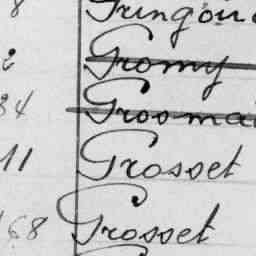 8 Gringoir
2 Gromy
34 Grosmai
11 Grosset
168 Grosset